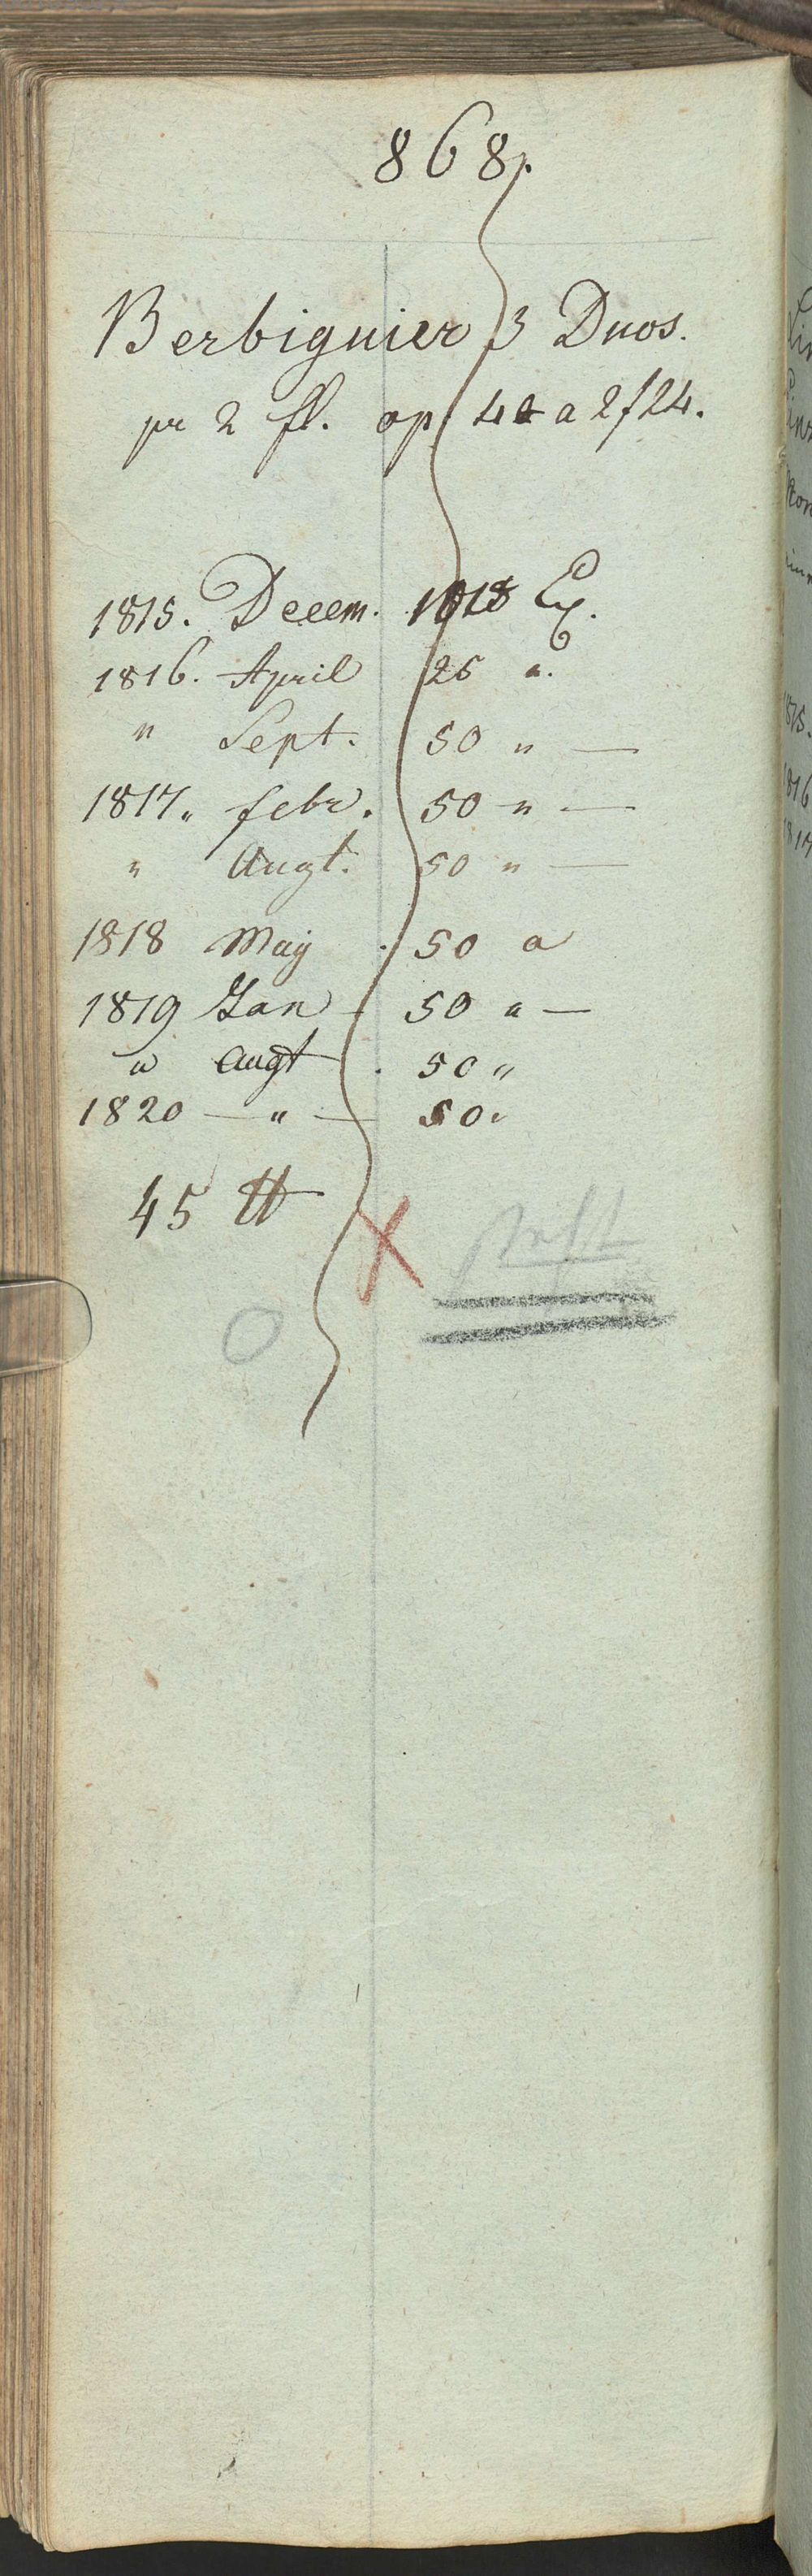 868.
Berbiguier 3 Duos.
pr 2 fl. op 4 a 2f24.
1815. Decem. Ex.
1816. April 25 "
" Sept. 50 " —
1817. febr. 50 " —
" Augt. 50 " —
1818 Maÿ . 50 "
1819 Jan — 50 " —
" Augt . 50 "
1820 — " — 50 "
45 ℔